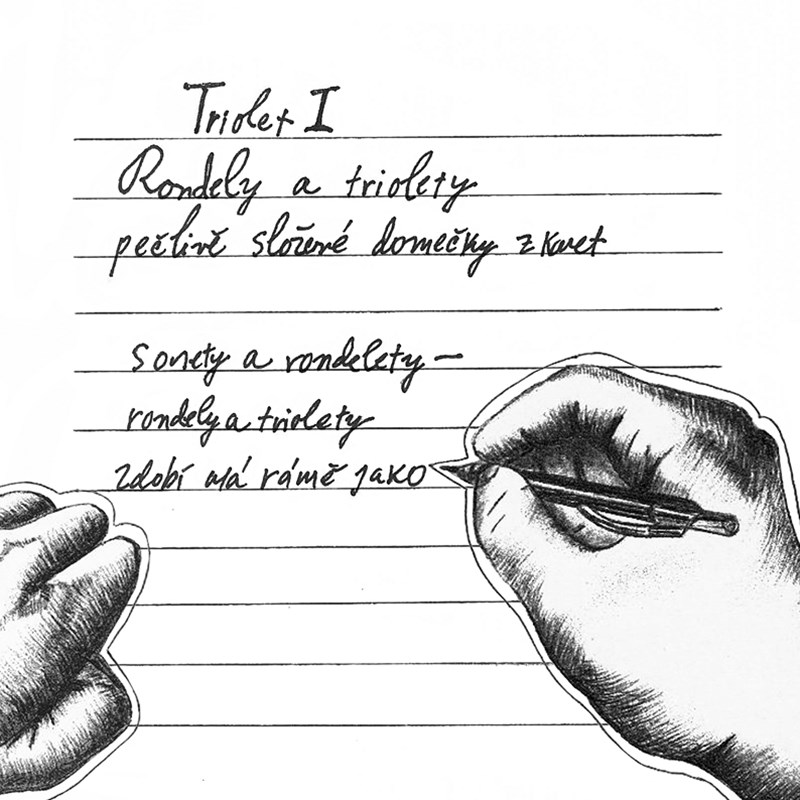 Triolet I
Rondely a triolety
pečlivě složené domečky z Karet
Sonety a rondelety —
rondely a triolety
zdobí má rámě jako